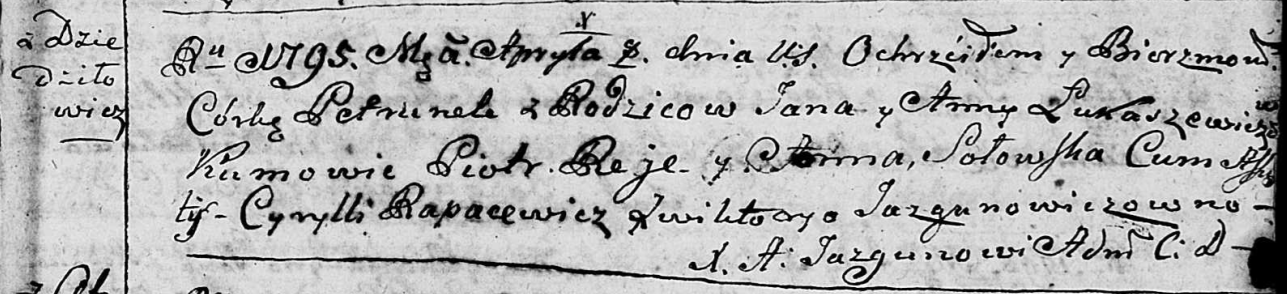 z Dzie
dziło
wicz
Ru 1795. Mca Apryla 8. dnia V.S. Ochrzciłem y Bierzmow.
Córkę Petrunelę z Rodzicow Jana y Anny Łukaszewiczow
Kumowie Piotr. Reje. y Anna, Sołowska Cum Assys
tys - Cyrylli Rapacewicz Jazgunowiczowno -
X. A: Jazgunowi Adm C: D -